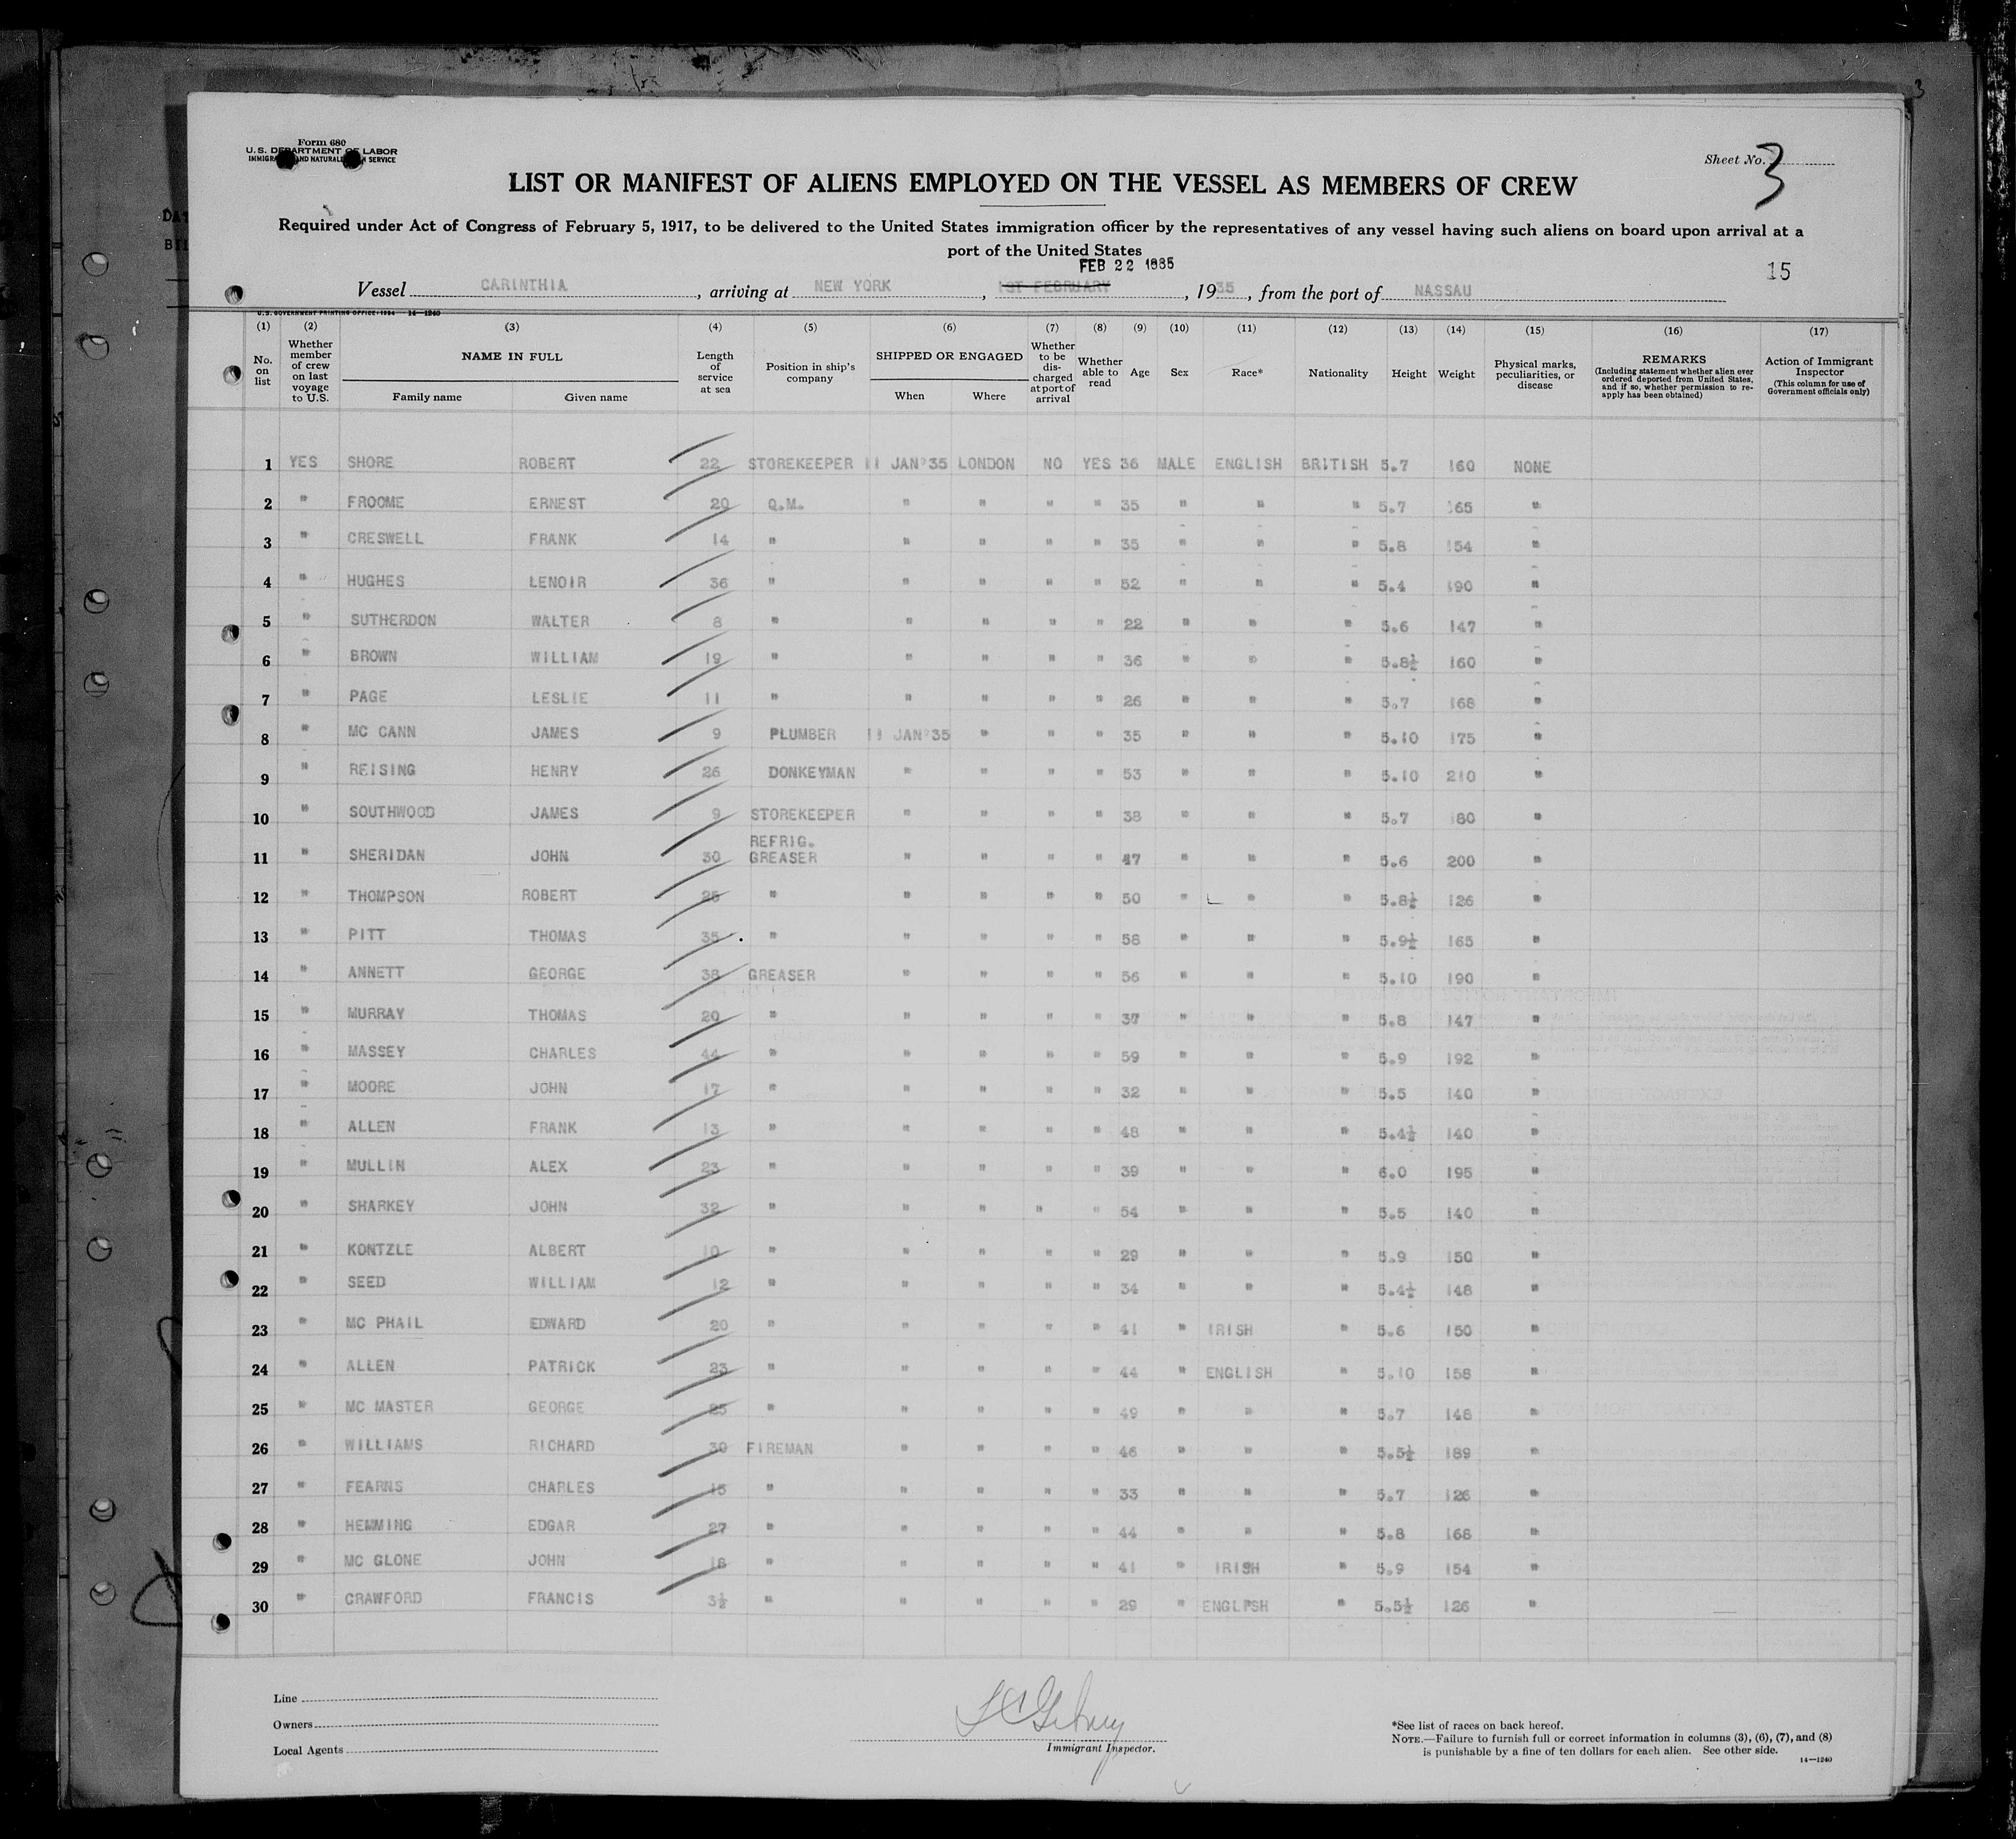 Form 680
U.S. DEPARTMENT OF LABOR
IMMIGRATION AND NATURALIZATION SERVICE
Sheet No. 3
LIST OR MANIFEST OF ALIENS EMPLOYED ON THE VESSEL AS MEMBERS OF CREW
Required under Act of Congress of February 5, 1917, to be delivered to the United States immigration officer by the representatives of any vessel having such aliens on board upon arrival at a
port of the United States
FEB 22 1935
15
Vessel CARINTHIA, arriving at NEW YORK, 1ST FEBRUARY, 1935, from the port of NASSAU
U.S. GOVERNMENT PRINTING OFFICE: 1934 14—1240
(1) (2) (3) (4) (5) (6) (7) (8) (9) (10) (11) (12) (13) (14) (15) (16) (17)
No. on list
Whether member of crew on last voyage to U.S.
NAME IN FULL
Family name Given name
Length of service at sea
Position in ship's company
SHIPPED OR ENGAGED
When Where
Whether to be discharged at port of arrival
Whether able to read
Age
Sex
Race*
Nationality
Height
Weight
Physical marks, peculiarities, or disease
REMARKS
(Including statement whether alien ever ordered deported from United States, and if so, whether permission to reapply has been obtained)
Action of Immigrant Inspector
(This column for use of Government officials only)
1 YES SHORE ROBERT 22 STOREKEEPER 11 JAN'35 LONDON NO YES 36 MALE ENGLISH BRITISH 5.7 160 NONE
2 " FROOME ERNEST 20 Q.M. " " " " 35 " " " 5.7 165 "
3 " CRESWELL FRANK 14 " " " " " 35 " " " 5.8 154 "
4 " HUGHES LENOIR 36 " " " " " 52 " " " 5.4 190 "
5 " SUTHERDON WALTER 8 " " " " " 22 " " " 5.6 147 "
6 " BROWN WILLIAM 19 " " " " " 36 " " " 5.8½ 160 "
7 " PAGE LESLIE 11 " " " " " 26 " " " 5.7 168 "
8 " MC CANN JAMES 9 PLUMBER 11 JAN'35 " " " 35 " " " 5.10 175 "
9 " REISING HENRY 26 DONKEYMAN " " " " 53 " " " 5.10 210 "
10 " SOUTHWOOD JAMES 9 STOREKEEPER " " " " 38 " " " 5.7 180 "
11 " SHERIDAN JOHN 30 REFRIG. GREASER " " " " 47 " " " 5.6 200 "
12 " THOMPSON ROBERT 25 " " " " " 50 " " " 5.8½ 126 "
13 " PITT THOMAS 35 " " " " " 58 " " " 5.9½ 165 "
14 " ANNETT GEORGE 38 GREASER " " " " 56 " " " 5.10 190 "
15 " MURRAY THOMAS 20 " " " " " 37 " " " 5.8 147 "
16 " MASSEY CHARLES 44 " " " " " 59 " " " 5.9 192 "
17 " MOORE JOHN 17 " " " " " 32 " " " 5.5 140 "
18 " ALLEN FRANK 13 " " " " " 48 " " " 5.4½ 140 "
19 " MULLIN ALEX 23 " " " " " 39 " " " 6.0 195 "
20 " SHARKEY JOHN 32 " " " " " 54 " " " 5.5 140 "
21 " KONTZLE ALBERT 10 " " " " " 29 " " " 5.9 150 "
22 " SEED WILLIAM 12 " " " " " 34 " " " 5.4½ 148 "
23 " MC PHAIL EDWARD 20 " " " " " 41 " IRISH " 5.6 150 "
24 " ALLEN PATRICK 23 " " " " " 44 " ENGLISH " 5.10 158 "
25 " MC MASTER GEORGE 25 " " " " " 49 " " " 5.7 148 "
26 " WILLIAMS RICHARD 30 FIREMAN " " " " 46 " " " 5.5½ 189 "
27 " FEARNS CHARLES 15 " " " " " 33 " " " 5.7 126 "
28 " HEMMING EDGAR 27 " " " " " 44 " " " 5.8 168 "
29 " MC GLONE JOHN 18 " " " " " 41 " IRISH " 5.9 154 "
30 " CRAWFORD FRANCIS 3½ " " " " " 29 " ENGLISH " 5.5½ 126 "
Line
Owners
Local Agents
Immigrant Inspector.
*See list of races on back hereof.
NOTE.—Failure to furnish full or correct information in columns (3), (6), (7), and (8)
is punishable by a fine of ten dollars for each alien. See other side.
14—1240